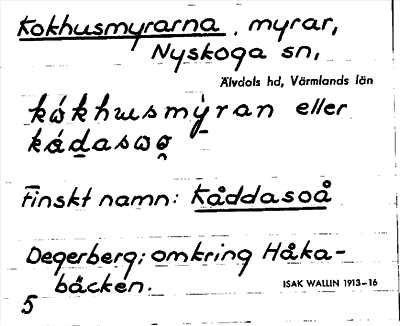 Kokhusmyrarna, myrar,
Nyskoga sn,
Älvdals hd, Värmlands län
kókhusmýran eller
kádasoo
Finskt namn: Kåddasoå
Degerberg; omkring Håka-
bäcken.
ISAK WALLIN 1913-16
5